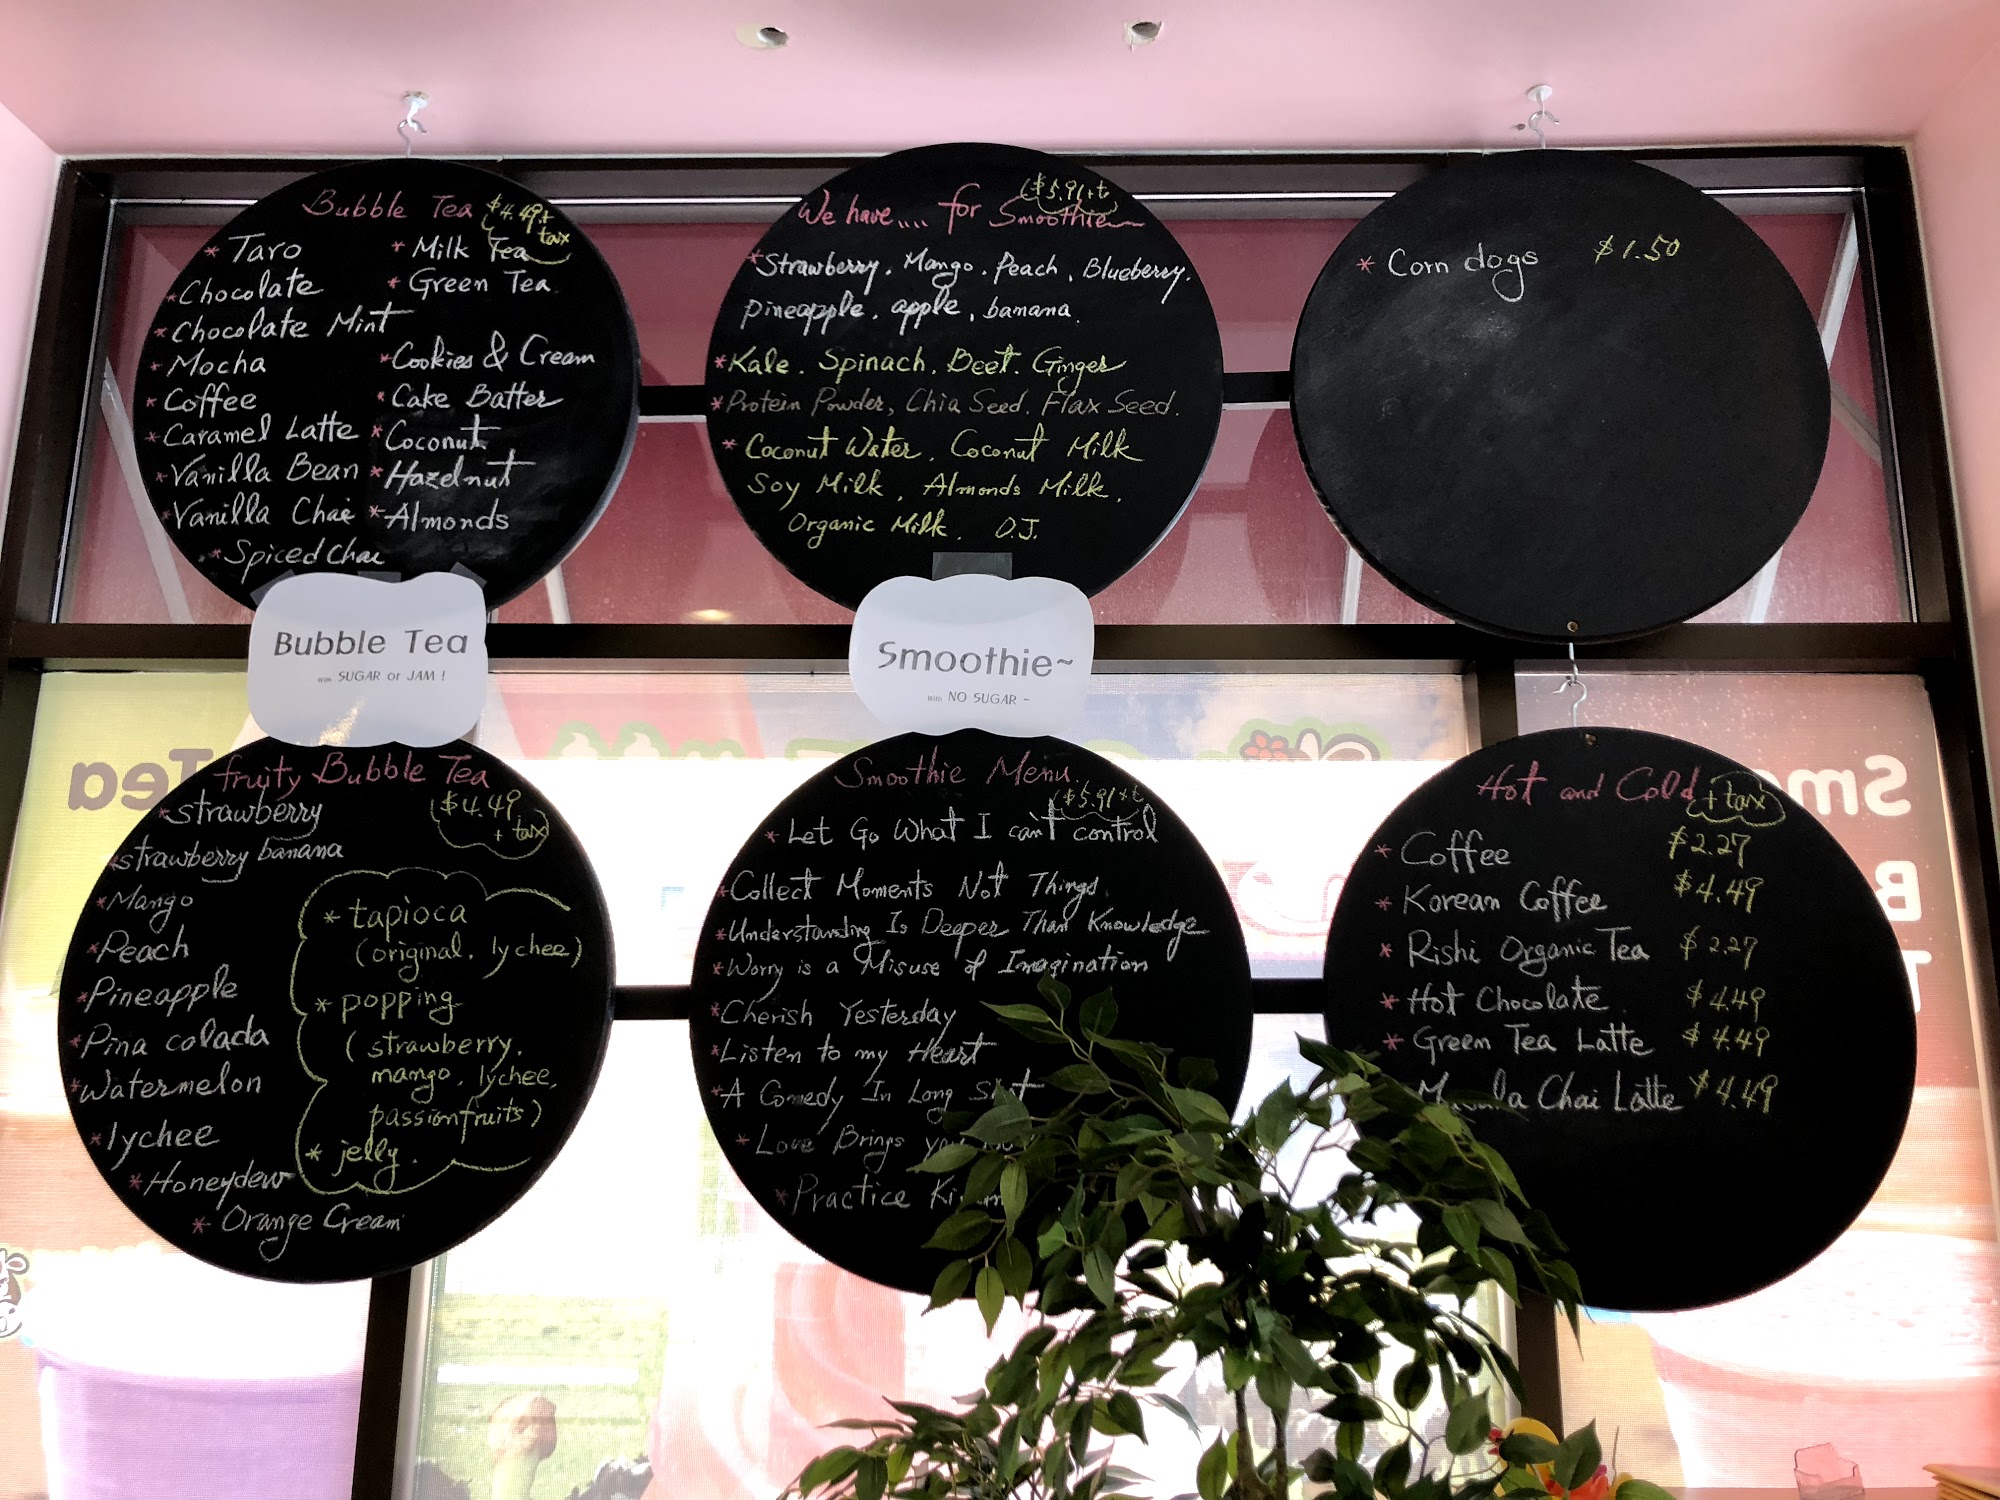 Bubble Tea $4.49+
tax
* Taro
* Chocolate
* Chocolate Mint
* Mocha
* Coffee
* Caramel Latte
* Vanilla Bean
* Vanilla Chai
* Spiced Chai
* Milk Tea
* Green Tea
* Cookies & Cream
* Cake Batter
* Coconut
* Hazelnut
* Almonds
We have.... for Smoothie
($5.91+t)
* Strawberry. Mango. Peach, Blueberry.
pineapple. apple, banana.
* Kale. Spinach. Beet. Ginger
* Protein Powder, Chia Seed. Flax Seed.
* Coconut Water, Coconut Milk
Soy Milk, Almonds Milk.
Organic Milk. O.J.
* Corn dogs $1.50
Bubble Tea
With SUGAR or JAM !
Smoothie~
With NO SUGAR ~
fruity Bubble Tea
($4.49
+ tax)
* strawberry
* strawberry banana
* Mango
* Peach
* Pineapple
* Pina colada
* Watermelon
* lychee
* Honeydew
* Orange Cream
* tapioca
(original, lychee)
* popping
(strawberry.
mango, lychee,
passionfruits)
* jelly.
Smoothie Menu.
($5.91+t
* Let Go What I can't control
* Collect Moments Not Things.
* Understanding Is Deeper Than Knowledge
* Worry is a Misuse of Imagination
* Cherish Yesterday
* Listen to my Heart
* A Comedy In Long Shot
* Love Brings you
* Practice
Hot and Cold + tax
* Coffee $2.27
* Korean Coffee $4.49
* Rishi Organic Tea $2.27
* Hot Chocolate. $4.49
* Green Tea Latte $4.49
Masala Chai Latte $4.49
Tea
Sm
B
T